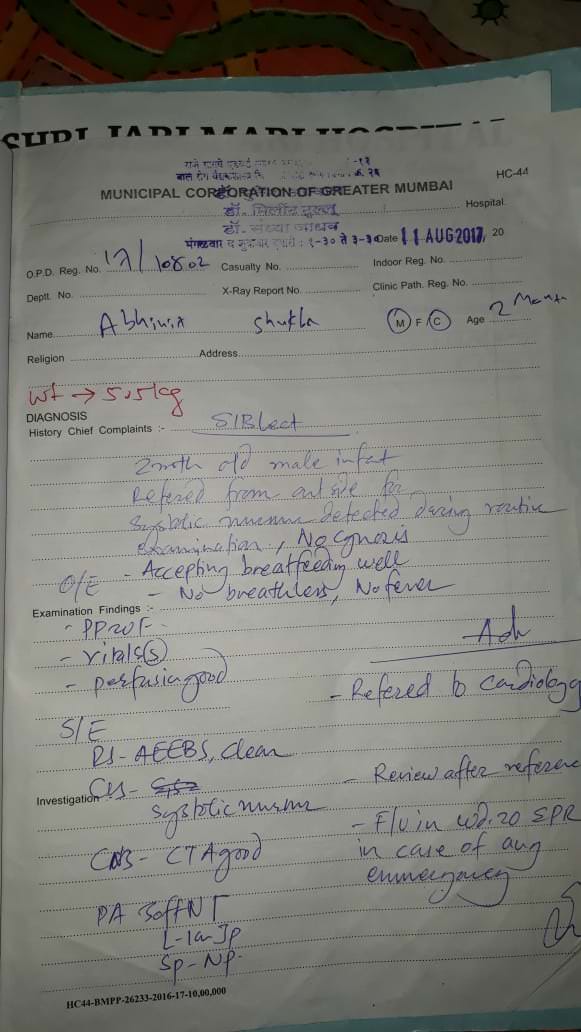 SHRI JARI MARI HOSPITAL
HC-44
MUNICIPAL CORPORATION OF GREATER MUMBAI
Hospital
डॉ. मिलींद
डॉ. संध्या जाधव
मंगळवार व शुक्रवार १-३० ते ३-३० Date 11 AUG 2017, 20
O.P.D. Reg. No. 17/10802 Casualty No. Indoor Reg. No.
Deptt. No. X-Ray Report No. Clinic Path. Reg. No.
Name Shukla M F C Age 2 Month
Religion Address
wt → 5.5 kg
DIAGNOSIS
History Chief Complaints :- S/B Lect
2 month old male infant
Refered from outside for
systolic murmur detected during routine
examination, No cynosis
O/E - Accepting breatfeeding well
- No breathless, No fever
Examination Findings :-
- vitals (S)
- perfusion good
Adv
- Refered to cardiology
S/E
RS - AEEBS, clear
Investigation
systolic murmur
- Review after reference
CNS - CTA good
- F/U in wd. 20 EPR
in case of any
emmergency
PA Soff NT
HC44-BMPP-26233-2016-17-10,00,000